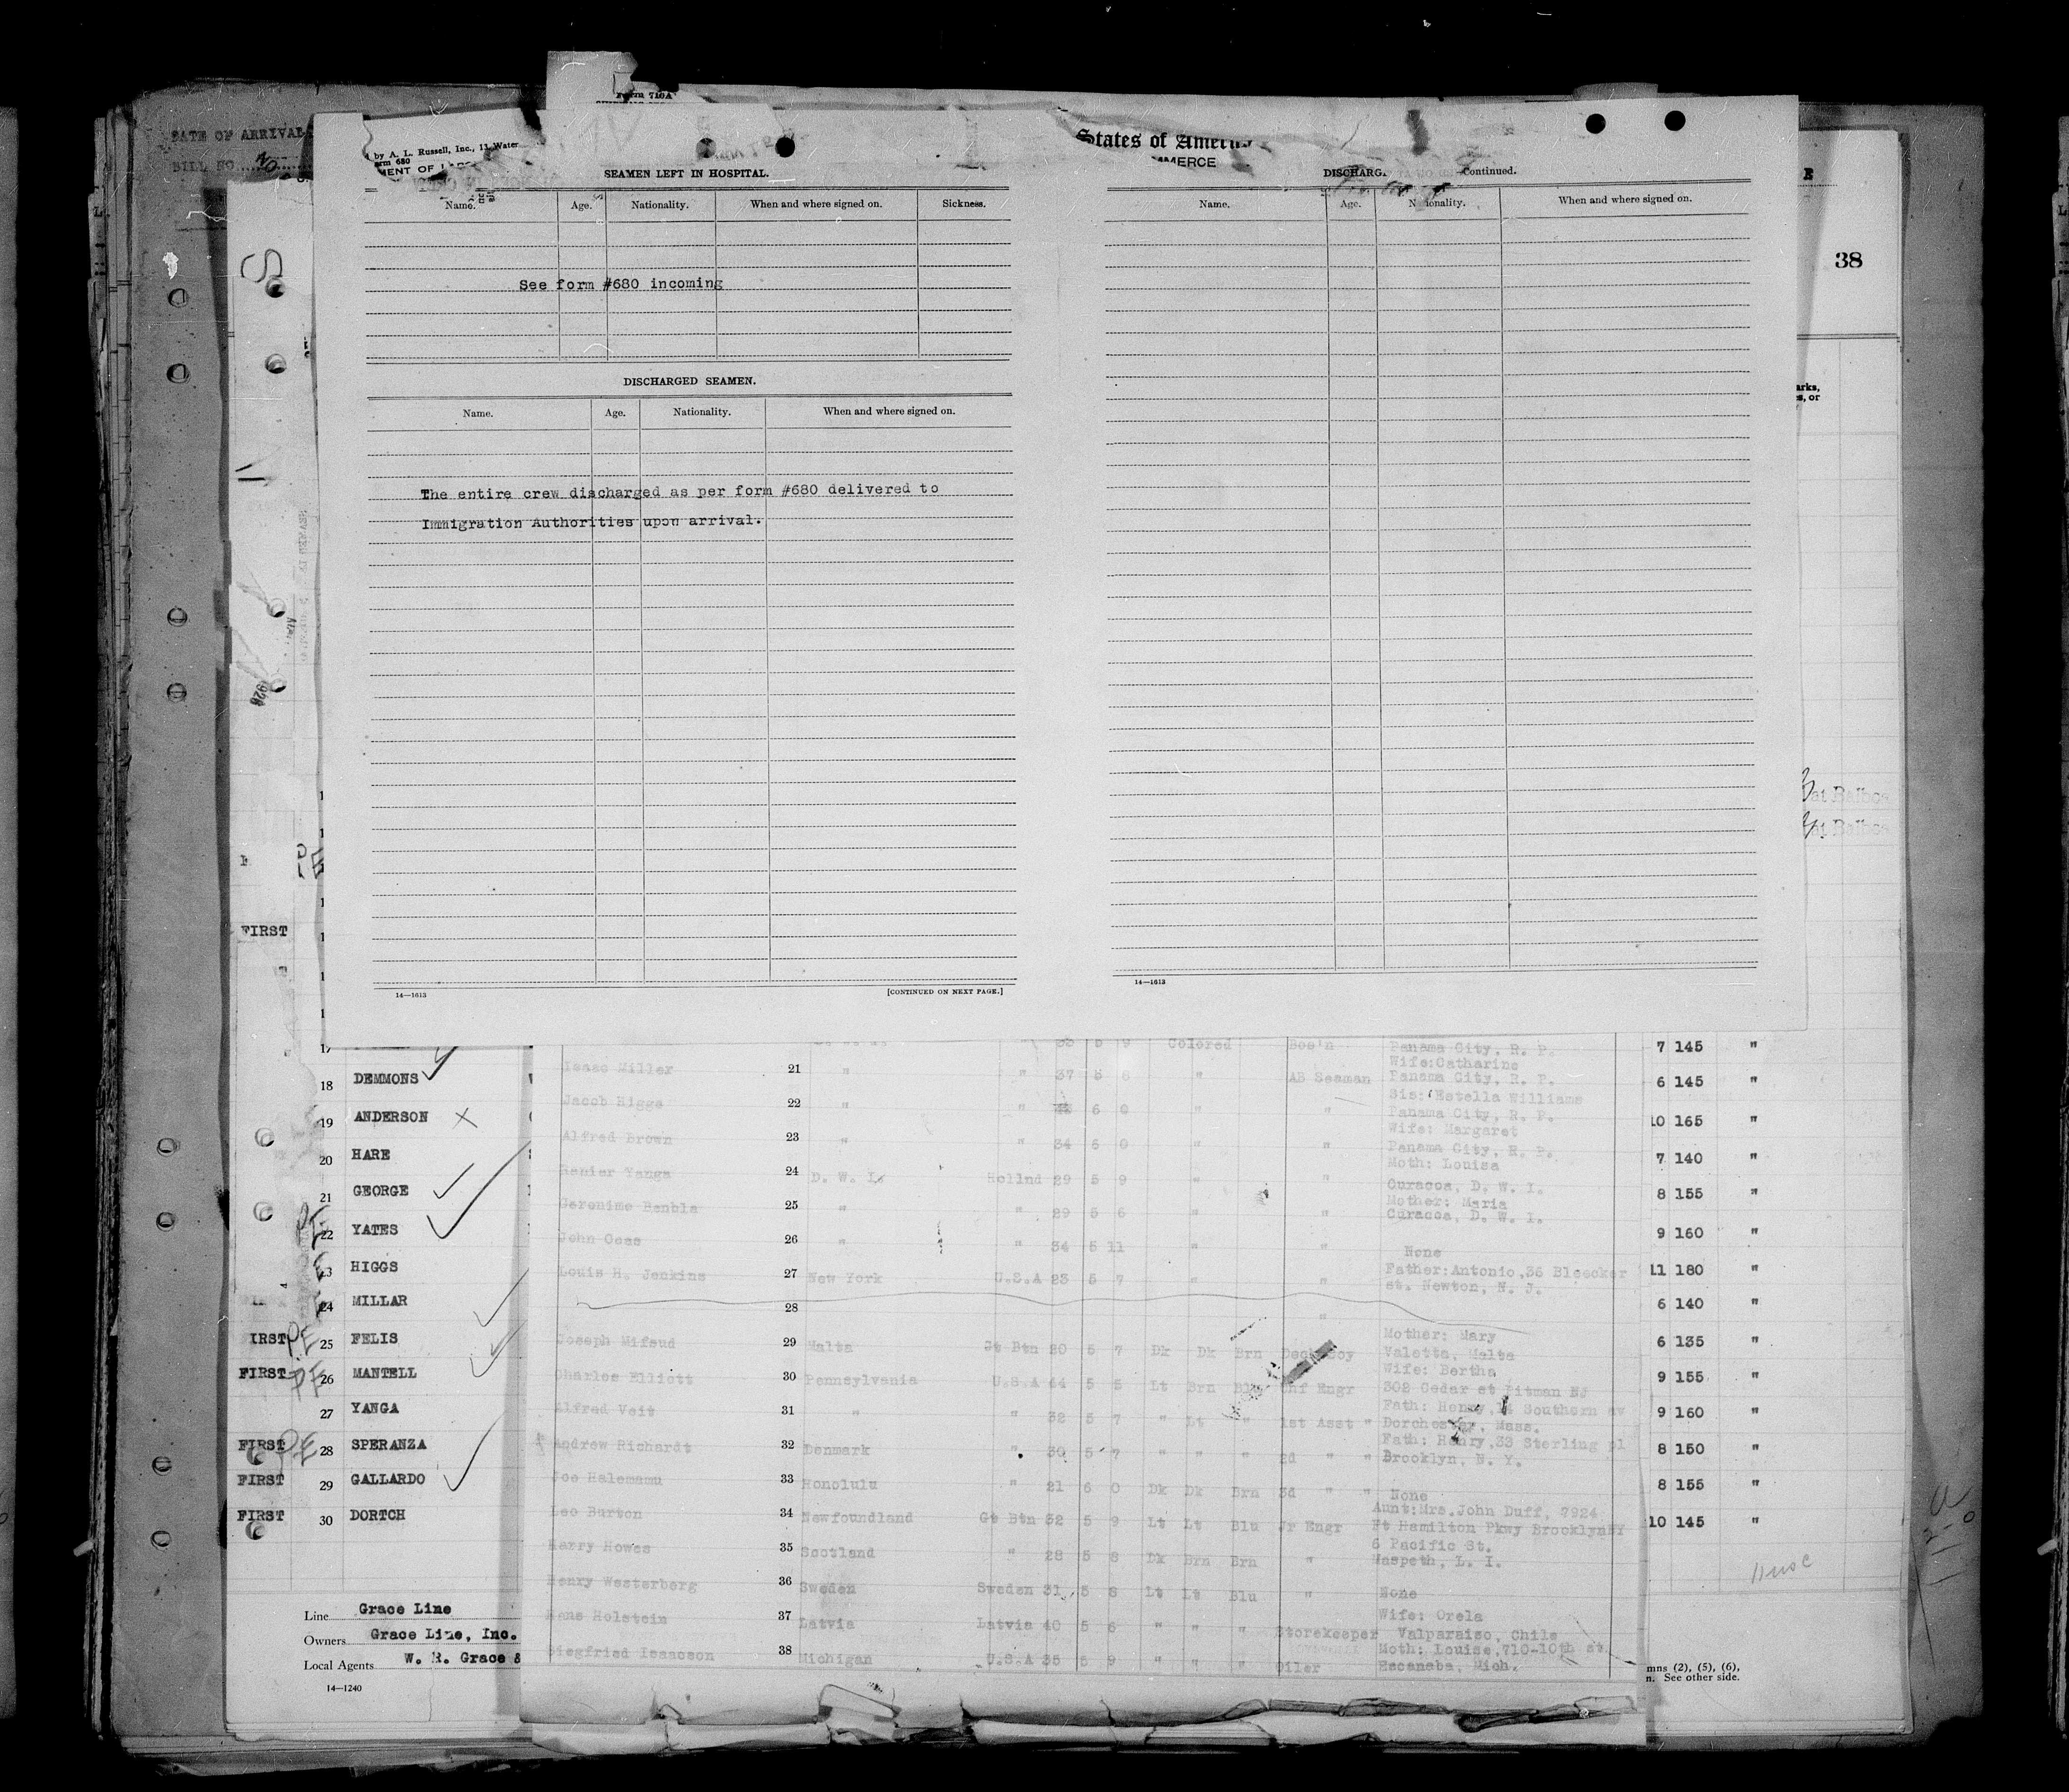 DATE OF ARRIVAL
BILL NO.
Form 710A
by A. L. Russell, Inc., 11 Water
SEAMEN LEFT IN HOSPITAL.
Name. Age. Nationality. When and where signed on. Sickness.
See form #680 incoming
DISCHARGED SEAMEN.
Name. Age. Nationality. When and where signed on.
The entire crew discharged as per form #680 delivered to
Immigration Authorities upon arrival.
14—1613 [CONTINUED ON NEXT PAGE.]
States of
MERCE
DISCHARG Continued.
Name. Age. Nationality. When and where signed on.
14—1613
38
FIRST
17
18 DEMMONS
19 ANDERSON
20 HARE
21 GEORGE
22 YATES
HIGGS
24 MILLAR
IRST 25 FELIS
FIRST 26 MANTELL
27 YANGA
FIRST 28 SPERANZA
FIRST 29 GALLARDO
FIRST 30 DORTCH
Line Grace Line
Owners Grace Line, Inc.
Local Agents W. R. Grace &
14—1240
Colored Bos'n Panama City, R. P.
Wife:Catharine
Isaac Miller 21 " " 37 5 6 " AB Seaman Panama City, R. P.
Sis: Estella Williams
Jacob Higgs 22 " " 6 0 " " Panama City, R. P.
Wife: Margaret
Alfred Brown 23 " " 34 6 0 " " Panama City, R. P.
Moth: Louisa
Renier Yanga 24 D. W. I. Hollnd 29 5 9 " " Curacoa, D. W. I.
Mother: Maria
Geronimo 25 " " 29 5 6 " " Curacoa, D. W. I.
John 26 " " 34 5 11 " " None
Louis H. Jenkins 27 New York U.S.A 23 5 7 " " Father:Antonio,36 Bleecker
st. Newton, N. J.
28 "
Joseph Mifsud 29 Malta Gt Btn 20 5 7 Dk Dk Brn Deck Boy Mother: Mary
Valetta, Malta
Charles Elliott 30 Pennsylvania U.S.A 44 5 5 Lt Brn Blu Chf Engr Wife: Bertha
302 Cedar st Pitman NJ
Alfred Veit 31 " " 32 5 7 " Lt " 1st Asst " Fath: Henry, Southern av
Dorchester, Mass.
Andrew Richardt 32 Denmark " 30 5 7 " " " 2d " " Fath: Henry,33 Sterling pl
Brooklyn, N. Y.
Joe Halemamu 33 Honolulu " 21 6 0 Dk Dk Brn 3d " " None
Leo Burton 34 Newfoundland Gt Btn 32 5 9 Lt Lt Blu Jr Engr Aunt:Mrs.John Duff, 7924
Ft Hamilton Pkwy BrooklynNY
Harry Howes 35 Scotland " 28 5 8 Dk Brn Brn " 6 Pacific St.
Maspeth, L. I.
Henry Westerberg 36 Sweden Sweden 31 5 8 Lt Lt Blu " None
Hans Holstein 37 Latvia Latvia 40 5 6 " " " Storekeeper Wife: Orela
Valparaiso, Chile
Siegfried Isaacson 38 Michigan U.S.A 35 5 9 " " " Oiler Moth: Louise,710-10th st.
Escanaba, Mich.
7 145 "
6 145 "
10 165 "
7 140 "
8 155 "
9 160 "
11 180 "
6 140 "
6 135 "
9 155 "
9 160 "
8 150 "
8 155 "
10 145 "
mns (2), (5), (6),
n. See other side.